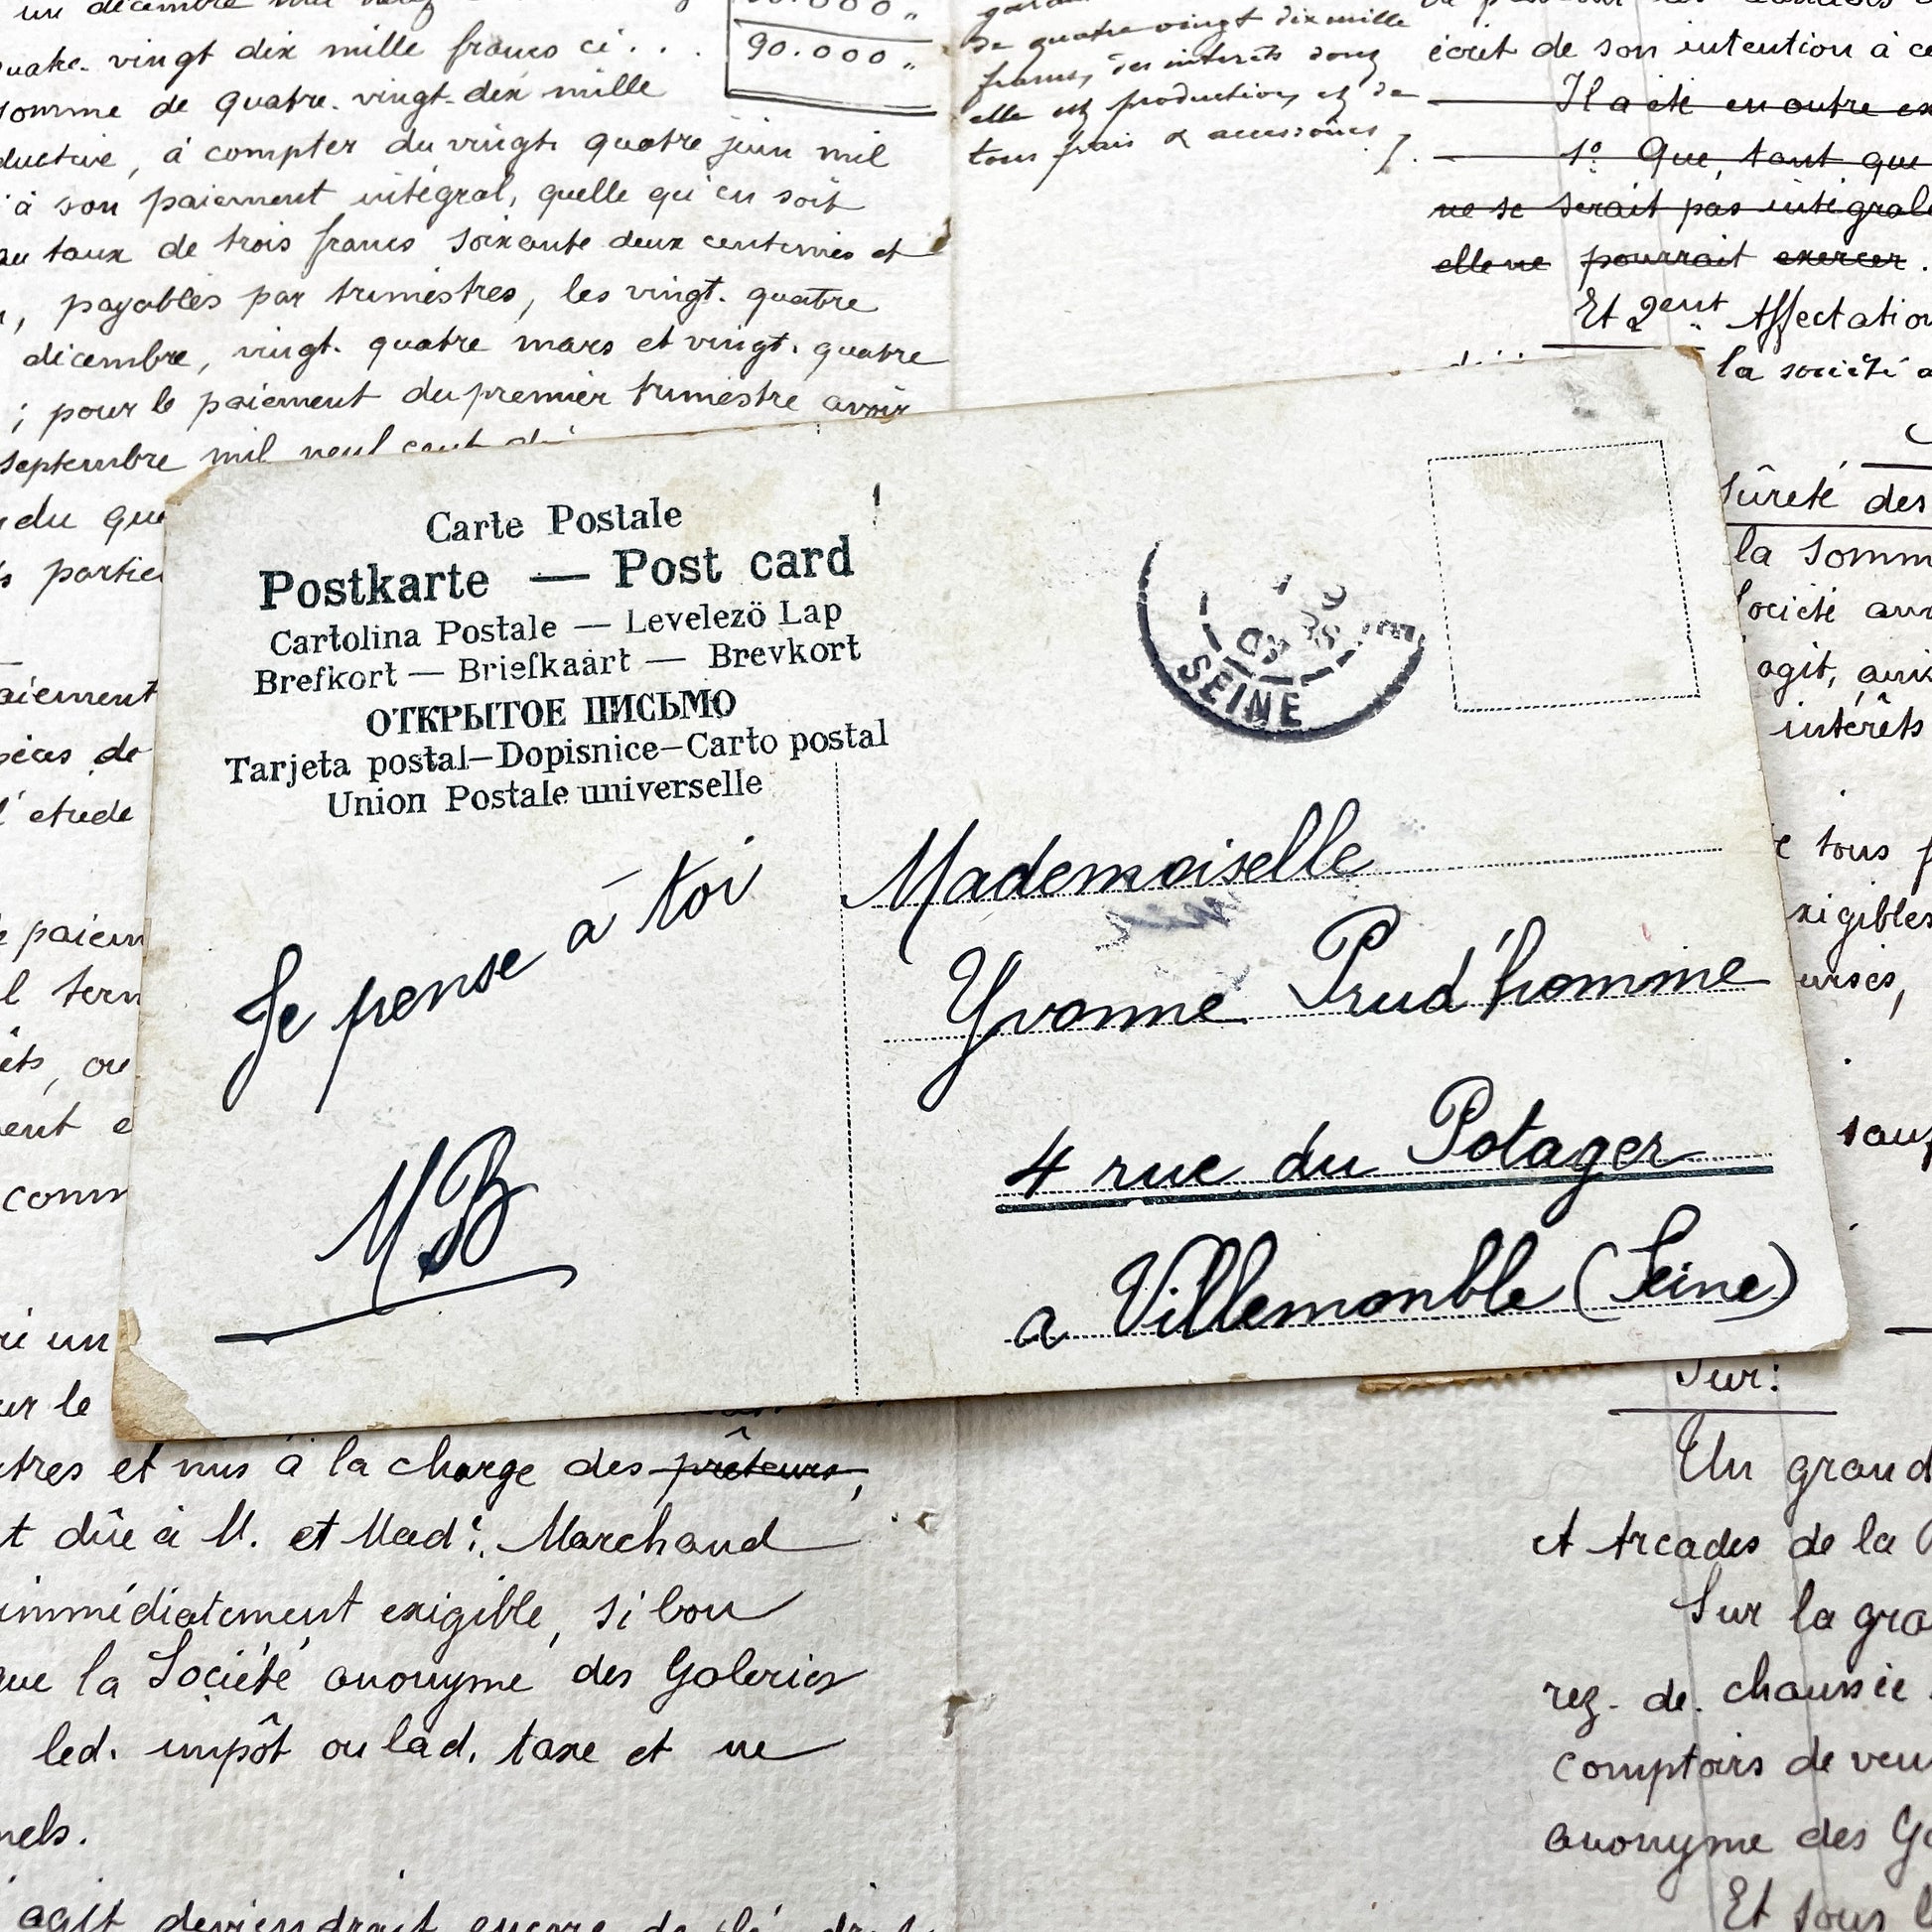 un décembre mil neuf
quatre-vingt dix mille francs ci . . .
90.000 "
somme de quatre-vingt-dix mille
ductive, à compter du vingt quatre juin mil
'à son paiement intégral, quelle qu'en soit
au taux de trois francs soixante deux centimes et
, payables par trimestres, les vingt. quatre
décembre, vingt. quatre mars et vingt. quatre
; pour le paiement du premier trimestre avoir
septembre mil neuf cent
du que
partie
paiement
de
l'étude
paiem
l term
êts, ou
ent e
comm
un
ur le
de quatre vingt dix mille
francs, des intérêts dont
elle est productive, et de
tous frais & accessoires /.
écrit de son intention à ce
Il a été en outre ex
1° Que, tant que
ne se serait pas intégral
elle ne pourrait exercer.
Et 2ent Affectation
la société a
Sûreté des
la somm
Société an
agit, ains
intérêts
tous p
xigibles
urses,
sauf
Carte Postale
Postkarte — Post card
Cartolina Postale — Levelezö Lap
Brefkort — Briefkaart — Brevkort
ОТКРЫТОЕ ПИСЬМО
Tarjeta postal—Dopisnice—Carto postal
Union Postale universelle
SEINE
Je pense à toi
MB
Mademoiselle
Yvonne Prud'homme
4 rue du Potager
a Villemomble (Seine)
tres et mis à la charge des prêteurs,
t dûe à M. et Made. Marchand
immédiatement exigible, si bon
que la Société anonyme des Galeries
led. impôt ou lad. taxe et ne
nels.
agit deviendrait encore de plé droit
Sur:
Un grand
et Arcades de la
Sur la gra
rez-de-chaussée
comptoirs de ven
anonyme des Ga
Et tous l